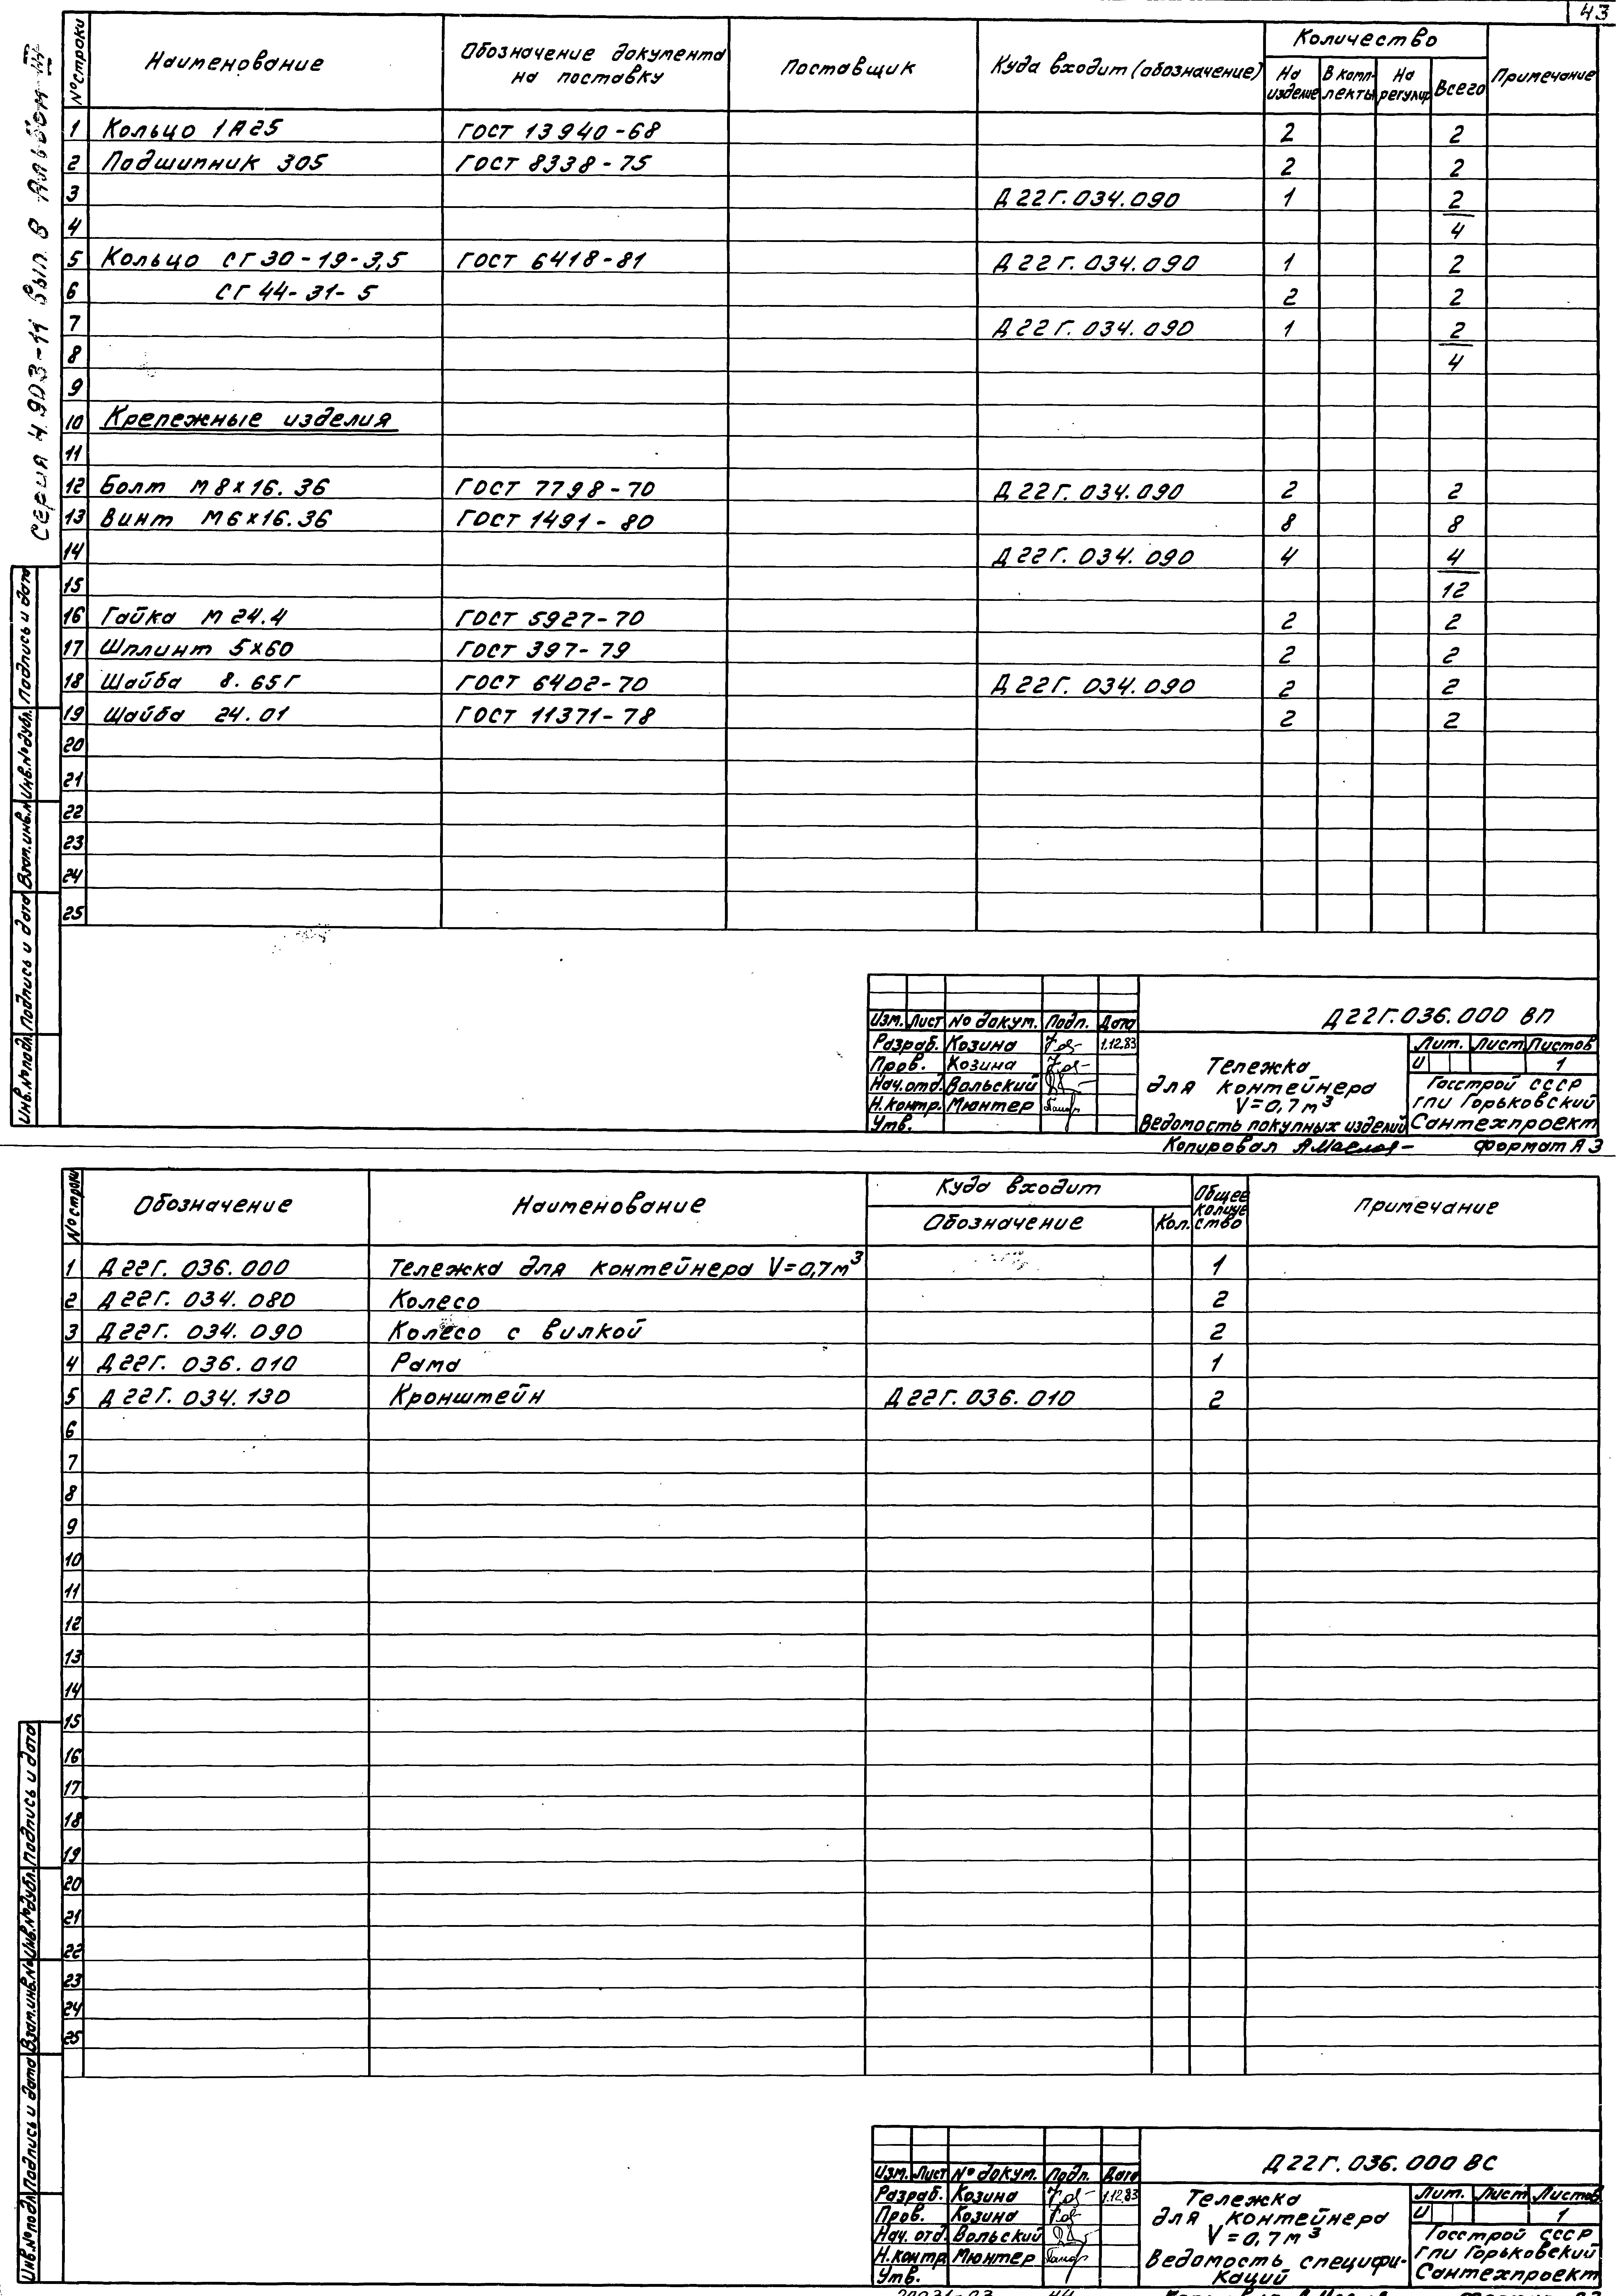 43
Серия 4.903-11 Вып. 8 Альбом III
№ строки Наименование Обозначение документа на поставку Поставщик Куда входит (обозначение) Количество Примечание
На изделие В комплекты На регулир. Всего
1 Кольцо 1А25 ГОСТ 13940-68 2 2
2 Подшипник 305 ГОСТ 8338-75 2 2
3 Д22Г.034.090 1 2
4 4
5 Кольцо СГ30-19-3,5 ГОСТ 6418-81 Д22Г.034.090 1 2
6 СГ44-31-5 2 2
7 Д22Г.034.090 1 2
8 4
9
10 Крепежные изделия
11
12 Болт М8×16.36 ГОСТ 7798-70 Д22Г.034.090 2 2
13 Винт М6×16.36 ГОСТ 1491-80 8 8
14 Д22Г.034.090 4 4
15 12
16 Гайка М24.4 ГОСТ 5927-70 2 2
17 Шплинт 5×60 ГОСТ 397-79 2 2
18 Шайба 8.65Г ГОСТ 6402-70 Д22Г.034.090 2 2
19 Шайба 24.01 ГОСТ 11371-78 2 2
20
21
22
23
24
25
Инв.№подл. Подпись и дата Взам.инв.№ Инв.№дубл. Подпись и дата
Д22Г.036.000 ВП
Изм. Лист № докум. Подп. Дата
Разраб. Козина 1.12.83
Пров. Козина
Нач.отд. Вольский
Н.контр. Мюнтер
Утв.
Тележка
для контейнера
V=0,7м³
Ведомость покупных изделий
Лит. Лист Листов
И 1
Госстрой СССР
ГПИ Горьковский
Сантехпроект
Копировал Формат А3
№ строки Обозначение Наименование Куда входит Общее количество Примечание
Обозначение Кол.
1 Д22Г.036.000 Тележка для контейнера V=0,7м³ 1
2 Д22Г.034.080 Колесо 2
3 Д22Г.034.090 Колесо с вилкой 2
4 Д22Г.036.010 Рама 1
5 Д22Г.034.130 Кронштейн Д22Г.036.010 2
6
7
8
9
10
11
12
13
14
15
16
17
18
19
20
21
22
23
24
25
Инв.№подл. Подпись и дата Взам.инв.№ Инв.№дубл. Подпись и дата
Д22Г.036.000 ВС
Изм. Лист № докум. Подп. Дата
Разраб. Козина 1.12.83
Пров. Козина
Нач. отд. Вольский
Н.контр Мюнтер
Утв.
Тележка
для контейнера
V=0,7м³
Ведомость специфи-
каций
Лит. Лист Листов
И 1
Госстрой СССР
ГПИ Горьковский
Сантехпроект